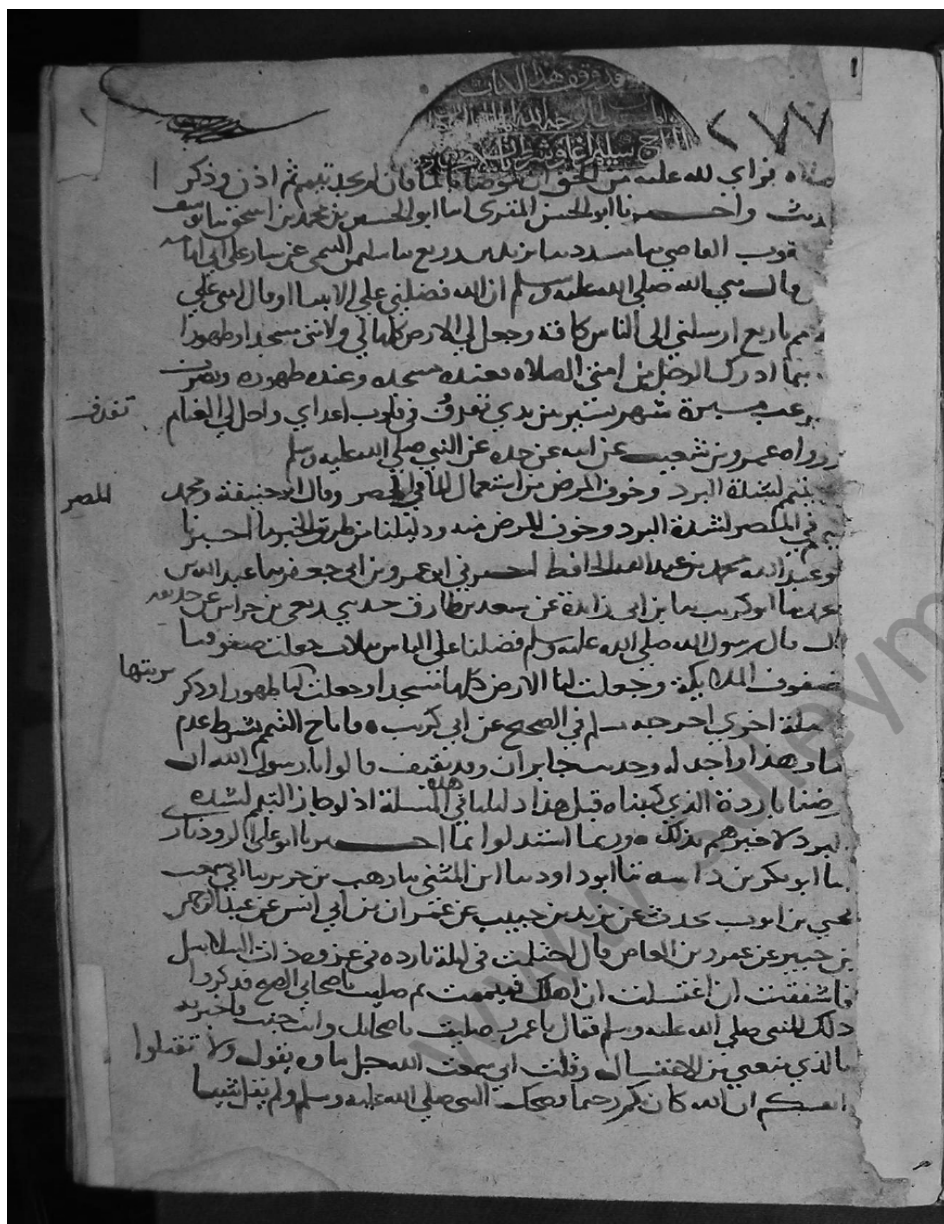 قد وقف هذا الكتاب
الحاج سليم اغا
٢٧٧
فان لم يجد تيمم ثم اذن وذكر
واخبرنا ابو الحسن المقري انا ابو الحسن بن محمد بن اسحق نا يوسف
يعقوب القاضي نا مسدد نا يزيد بن زريع نا سليمن التيمي عن سيار عن ابي امامه
قال نبي الله صلى الله عليه وسلم ان الله فضلني على الانبيا او قال امتي على
الامم باربع ارسلني الى الناس كافة وجعل لي الارض كلها لي ولامتي مسجدا وطهورا
اينما ادركت الرجل من امتي الصلاه فعنده مسجده وعنده طهوره ونصرت
بالرعب مسيرة شهر يسير بين يدي تقذف في قلوب اعداي واحل لي الغنايم
تقذف
ورواه عمرو بن شعيب عن ابيه عن جده عن النبي صلى الله عليه وسلم
يتيمم لشدة البرد وخوف المرض من استعمال الما في الحضر وقال ابو حنيفة ومحمد
المصر
في المصر لشدة البرد وخوف المرض منه ودليلنا من طريق الخبر ما اخبرنا
ابو عبد الله محمد بن عبد الله الحافظ اخبرني ابو عمرو بن ابي جعفر نا عبد الله بن
محمد نا ابو كريب نا ابن ابي زايدة عن سعد بن طارق حدثني ربعي بن حراش عن حذيفه
قال قال رسول الله صلى الله عليه وسلم فضلنا على الناس بثلاث جعلت صفوفنا
كصفوف الملايكة وجعلت لنا الارض كلها مسجدا وجعلت لنا طهورا وذكر
تربتها
خصلة اخرى اخرجه مسلم في الصحيح عن ابي كريب فاباح التيمم بشرط عدم
الما وهذا واجد له وحديث جابر ان وفد ثقيف قالوا يا رسول الله ان
ارضنا باردة الذي كتبناه قبل هذا دليلنا في هذه المسلة اذ لو جاز التيمم لشدة
البرد لاخبرهم بذلك وربما استدلوا بما اخبرنا ابو علي الروذباري
انا ابو بكر بن داسه نا ابو داود نا ابن المثنى نا وهب بن جرير نا ابي سمعت
يحيي بن ايوب يحدث عن يزيد بن حبيب عن عمران بن ابي انس عن عبد الرحمن
بن جبير عن عمرو بن العاص قال احتلمت في ليلة باردة في غزوة ذات السلاسل
فاشفقت ان اغتسلت ان اهلك فتيممت ثم صليت باصحابي الصبح فذكروا
ذلك للنبي صلى الله عليه وسلم فقال يا عمرو صليت باصحابك وانت جنب فاخبرته
بالذي منعني من الاغتسال وقلت اني سمعت الله جل ثناوه يقول ولا تقتلوا
انفسكم ان الله كان بكم رحيما وضحك النبي صلى الله عليه وسلم ولم يقل شيا